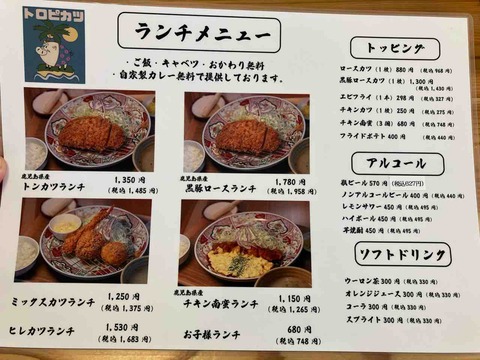 トロピカツ
ランチメニュー
・ご飯・キャベツ・おかわり無料
・自家製カレー無料で提供しております。
1,350 円
トンカツランチ (税込 1,485 円)
鹿児島県産 1,780 円
黒豚ロースランチ (税込 1,958 円)
1,250 円
ミックスカツランチ (税込 1,375 円)
1,530 円
ヒレカツランチ (税込 1,683 円)
鹿児島県産 1,150 円
チキン南蛮ランチ (税込 1,265 円)
680 円
お子様ランチ (税込 748 円)
トッピング
ロースカツ (1枚) 880 円 (税込 968 円)
黒豚ロースカツ (1枚) 1,300 円
(税込 1,430 円)
エビフライ (1本) 298 円 (税込 327 円)
チキンカツ (1枚) 250 円 (税込 275 円)
チキン南蛮 (3個) 680 円 (税込 748 円)
フライドポテト 400 円 (税込 440 円)
アルコール
瓶ビール 570 円 (税込627円)
ノンアルコールビール 400 円 (税込 440 円)
レモンサワー 450 円 (税込 495 円)
ハイボール 450 円 (税込 495 円)
芋焼酎 450 円 (税込 495 円)
ソフトドリンク
ウーロン茶 300 円 (税込 330 円)
オレンジジュース 300 円 (税込 330 円)
コーラ 300 円 (税込 330 円)
スプライト 300 円 (税込 330 円)